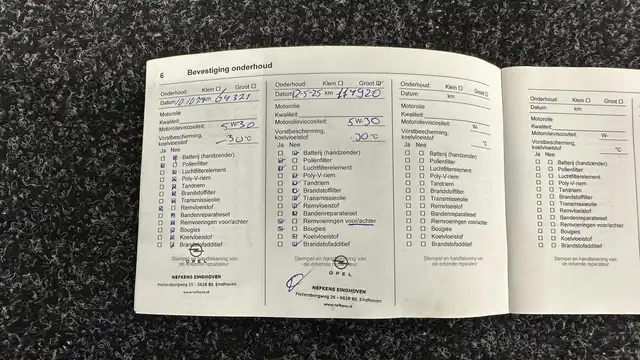 6 Bevestiging onderhoud
Onderhoud: Klein Groot
Datum km
Motorolie
Kwaliteit:
Motorolieviscositeit: 5W-30
Vorstbescherming,
koelvloeistof 30 °C
Ja Nee
Batterij (handzender)
Pollenfilter
Luchtfilterelement
Poly-V-riem
Tandriem
Brandstoffilter
Transmissieolie
Remvloeistof
Bandenreparatieset
Remvoeringen voor/achter
Bougies
Koelvloeistof
Brandstofadditief
Stempel en handtekening van
de erkende reparateur
OPEL
NEFKENS EINDHOVEN
Pietersbergweg 25 - 5628 BS Eindhoven
www.nefkens.nl
Onderhoud: Klein Groot
Datum 12-5-25 km 114920
Motorolie
Kwaliteit:
Motorolieviscositeit: 5W-30
Vorstbescherming,
koelvloeistof 30 °C
Ja Nee
Batterij (handzender)
Pollenfilter
Luchtfilterelement
Poly-V-riem
Tandriem
Brandstoffilter
Transmissieolie
Remvloeistof
Bandenreparatieset
Remvoeringen voor/achter
Bougies
Koelvloeistof
Brandstofadditief
Stempel en handtekening van
de erkende reparateur
OPEL
NEFKENS EINDHOVEN
Pietersbergweg 25 - 5628 BS Eindhoven
www.nefkens.nl
Onderhoud: Klein Groot
Datum km
Motorolie
Kwaliteit:
Motorolieviscositeit: W-
Vorstbescherming,
koelvloeistof °C
Ja Nee
Batterij (handzender)
Pollenfilter
Luchtfilterelement
Poly-V-riem
Tandriem
Brandstoffilter
Transmissieolie
Remvloeistof
Bandenreparatieset
Remvoeringen voor/achter
Bougies
Koelvloeistof
Brandstofadditief
Stempel en handtekening van
de erkende reparateur
Onderhoud: Klein Groot
Datum km
Motorolie
Kwaliteit:
Motorolieviscositeit: W-
Vorstbescherming,
koelvloeistof °C
Ja Nee
Batterij (handzender)
Pollenfilter
Luchtfilterelement
Poly-V-riem
Tandriem
Brandstoffilter
Transmissieolie
Remvloeistof
Bandenreparatieset
Remvoeringen voor/achter
Bougies
Koelvloeistof
Brandstofadditief
Stempel en handtekening van
de erkende reparateur